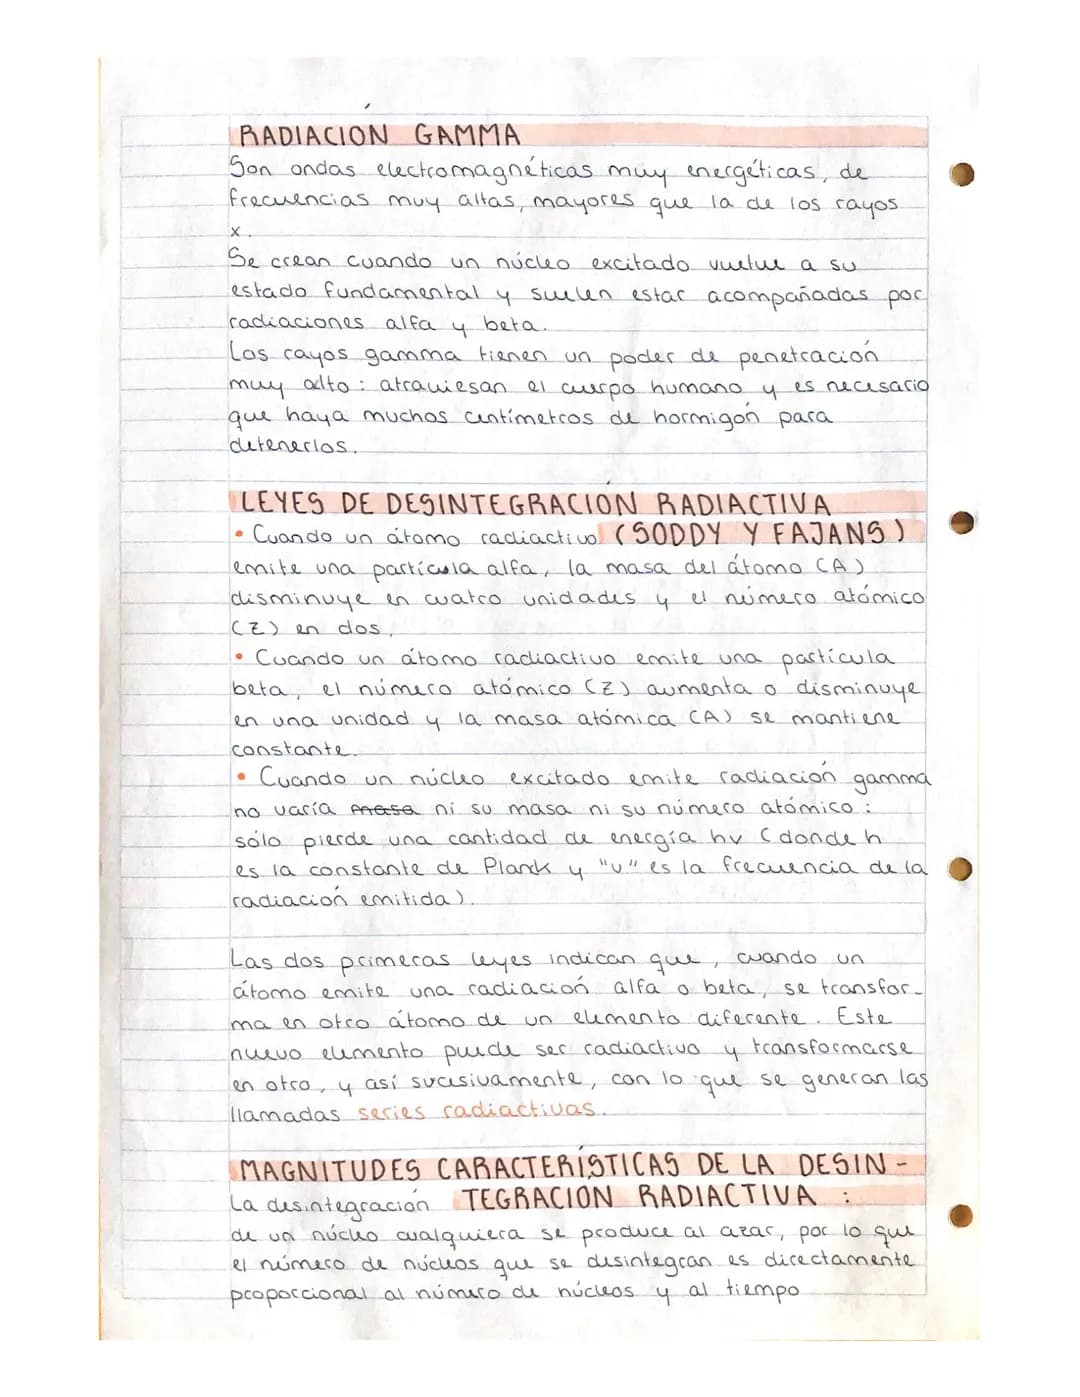 RADIACIÓN GAMMA
Son ondas electromagnéticas muy energéticas, de
frecuencias muy altas, mayores que la de los rayos
x.
Se crean cuando un núcleo excitado vuelve a su
estado fundamental y suelen estar acompañadas por
radiaciones alfa y beta.
Los rayos gamma tienen un poder de penetración
muy alto: atraviesan el cuerpo humano y es necesario
que haya muchos centímetros de hormigón para
detenerlos.
LEYES DE DESINTEGRACIÓN RADIACTIVA
• Cuando un átomo radiactivo (SODDY Y FAJANS)
emite una partícula alfa, la masa del átomo (A)
disminuye en cuatro unidades y el número atómico
(Z) en dos.
• Cuando un átomo radiactivo emite una partícula
beta, el número atómico (Z) aumenta o disminuye
en una unidad y la masa atómica (A) se mantiene
constante.
• Cuando un núcleo excitado emite radiación gamma
no varía masa ni su masa ni su número atómico:
sólo pierde una cantidad de energía hv (donde h
es la constante de Planck y "v" es la frecuencia de la
radiación emitida).
Las dos primeras leyes indican que, cuando un
átomo emite una radiación alfa o beta, se transfor-
ma en otro átomo de un elemento diferente. Este
nuevo elemento puede ser radiactivo y transformarse
en otro, y así sucesivamente, con lo que se generan las
llamadas series radiactivas.
MAGNITUDES CARACTERÍSTICAS DE LA DESIN-
La desintegración TEGRACIÓN RADIACTIVA :
de un núcleo cualquiera se produce al azar, por lo que
el número de núcleos que se desintegran es directamente
proporcional al número de núcleos y al tiempo